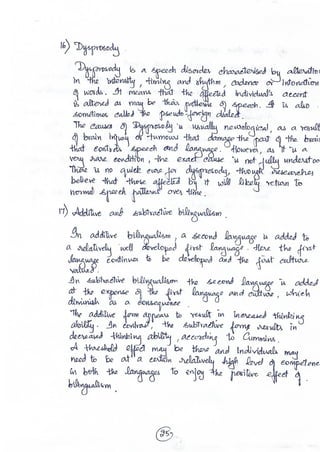 16) Dysprosody
Dysprosody is a speech disorder characterised by alteration
in the intensity, timing and rhythm, cadence or intonation
of words. It means that the affected individual's accent
is altered as may be their pattern of speech. It is also
sometimes called the pseudo-foreign dialect.
The causes of Dysprosody is usually neurological, as a result
of brain injury or tumours that damage the part of the brain
that controls speech and language. However, as it is a
very rare condition, the exact cause is not fully understood
There is no quick cure for dysprosody, though researchers
believe that those affected by it will likely return to
normal speech patterns over time.
17) Additive and subtractive bilingualism.
In additive bilingualism, a second language is added to
a relatively well developed first language. Here the first
language continues to be developed and the first culture
valued.
In subtractive bilingualism the second language is added
at the expense of the first language and culture, which
diminish as a consequence.
The additive form appears to result in increased thinking
ability. In contrast, the subtractive form results in
decreased thinking ability, according to Cummins.
A threshold effect may be there and individuals may
need to be at a certain relatively high level of competence
in both the languages to enjoy the positive effect of
bilingualism.
25